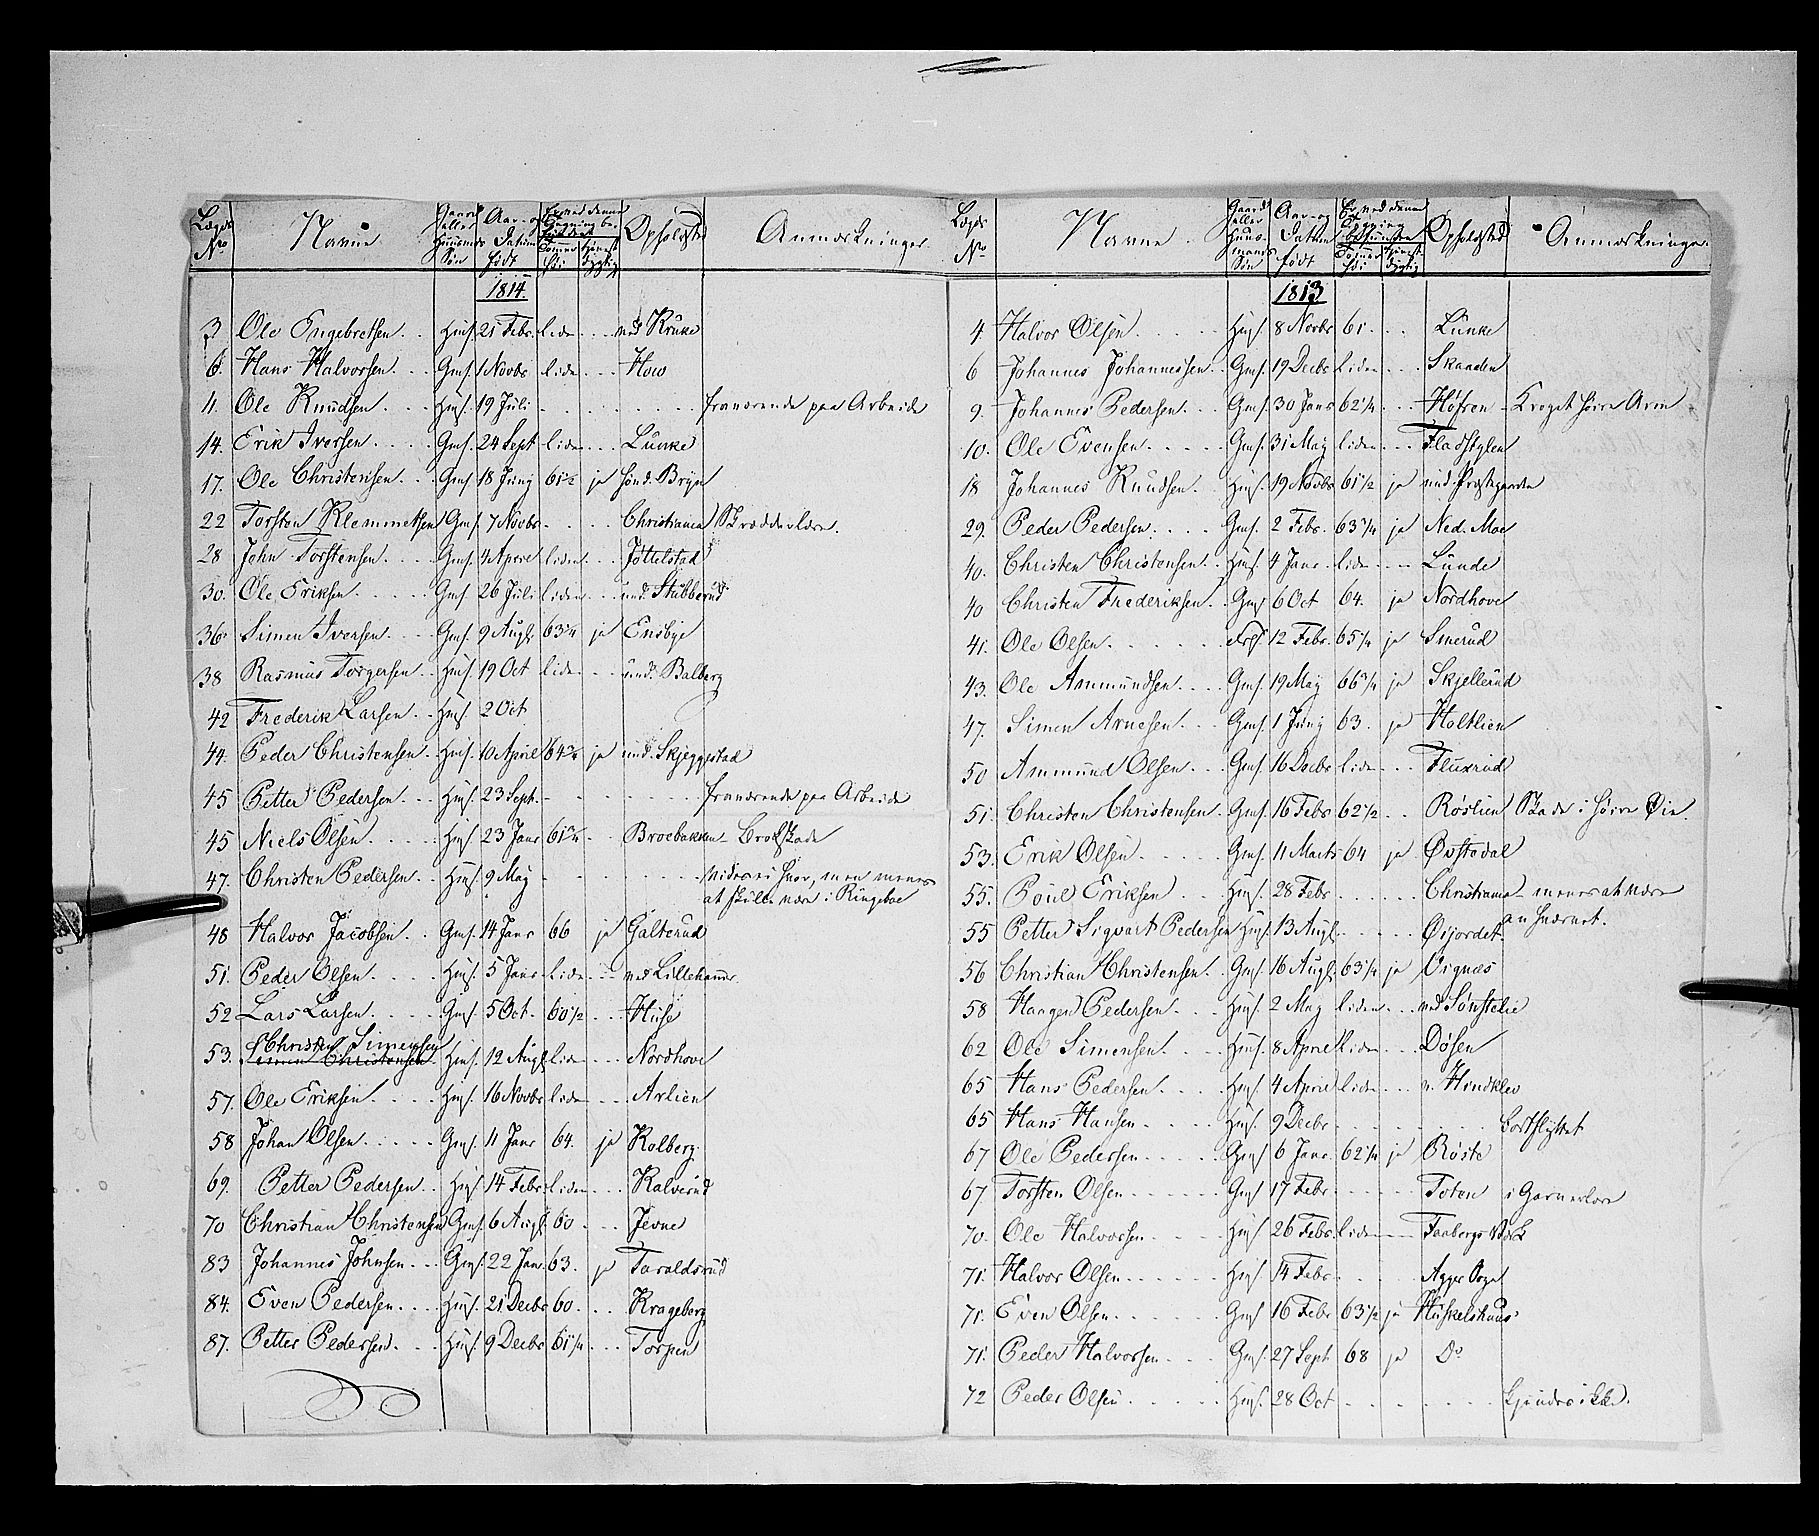 Lægds No Navne Gaard eller Huusmands Søn Aar- og Datum født Tommer Høi tjenstdygtig Opholdsted Anmærkninger.
1814.
3 Ole Engebretsen Huusf. 21 Febr. liden und Kruke
6. Hans Halvorsen Gmf. 1 Novbr liden How
11. Ole Knudsen Huusf. 19 Juli fraværende paa Arbeide
14. Erik Iversen Gmf. 24 Sept liden Lunke
17. Ole Christensen Gmf 18 Juny 61½ ja sønd. Bryn
22 Torsten Klemmetsen Gmf. 7 Novbr Christiania Skrædderlære.
28 John Torstensen Gmf. 4 April liden Jöttelstad
30. Ole Eriksen Gmf 26 Juli liden und Stubberud
36. Simen Iversen Gmf. 9 Augs. 63¼ ja Ensbye
38 Rasmus Torgersen Huusf. 19 Oct liden und. Balberg
42 Frederik Larsen Huusf 2 Oct
44. Peder Christensen Huusf. 10 April 64¾ ja und. Skjeggestad
45 Petter Pedersen Huusf. 23 Sept. fraværende paa Arbeide
45 Niels Olsen Huusf. 23 Janr 61¾ Broebakken Brokskade
47. Christen Pedersen Huusf. 9 May vides ei hvor, men menes
at skulle være i Ringeboe
48 Halvor Jacobsen Gmf. 14 Janr 66 ja Galterud
51. Peder Olsen Huusf. 5 Janr liden ved Lillehammer
52 Lars Larsen Gmf. 5 Oct. 60½ Huse
53. Christen Simensen
Simen Christensen Huusf. 12 Augs. liden Nordhove
57. Ole Eriksen Huusf. 16 Novbr liden Arlien
58 Johan Olsen Gmf. 11 Janr 64. ja Kolberg.
69. Petter Pedersen Huusf. 14 Febr liden Kalverud
70 Christian Christensen Gmf. 6 Augs. 60 Jevne
83 Johannes Johnsen Gmf. 22 Janr. 63. ja Taraldsrud
84. Even Pedersen Huusf. 21 Decbr 60. Krageberg
87. Petter Pedersen Huusf. 9 Decbr 61¼ Torpen
Lægds No Navne Gaard eller Huusmands Søn Aar- og Datum født Tommer Høi tjenstdygtig Opholdsted Anmærkninger.
1813
4. Halvor Olsen Huusf. 8 Novbr 61 Lunke
6 Johannes Johannessen Gmf. 19 Decbr liden Skanden
9. Johannes Pedersen Gmf. 30 Janr 62¼ Høfren Kroget høire Arm
10. Ole Evensen Gmf. 31 May liden Fladstylen
18 Johannes Knudsen Huusf. 19 Novbr 61½ ja und Præstegaarden
29. Peder Pedersen Gmf. 2 Febr. 63¾ ja Ned. Moe
40. Christen Christensen Huusf. 4 Janr liden Lunde
40 Christen Frederiksen Gmf 6 Oct 64. ja Nordhove
41. Ole Olsen 12 Febr. 65¼ ja Smerud
43. Ole Ammundsen Gmf. 19 May 66¾ ja Skjellerud
47. Simen Arnesen Gmf. 1 Juny 63. ja Holtlien
50 Ammund Olsen Gmf. 16 Decbr liden Fluxrud
51. Christen Christensen Gmf. 16 Febr 62½ Røslien Skade i høire Øie.
53. Erik Olsen Gmf. 11 Marts 64 ja Øvstdal
55. Poul Eriksen Huusf. 28 Febr Christiania menes at være
an hværvet.
55 Petter Sigvart Pedersen Huusf. 13 Augs. Øijordet.
56 Christian Christensen Gmf. 16 Augs. 63¼ ja Vignæs
58 Haagen Pedersen Huusf. 2 May liden ved Sønstelie
62 Ole Simensen Huusf. 8 April liden Døsen
65 Hans Pedersen Huusf. 4 April liden n. Hindklev
65 Hans Hansen Huusf. 9 Decbr bortflyttet
67 Ole Pedersen Gmf 6 Janr. 62¼ ja Røste
67. Torsten Olsen Gmf 17 Febr Toten i Garverlære
70. Ole Halvorsen Huusf 26 Febr. liden Faabergs Værk
71. Halvor Olsen Huusf 14 Febr Agger Sogn
71. Even Olsen Gmf 16 Febr 63½ ja Huskelshuus
71. Peder Halvorsen Gmf. 27 Sept 68 ja Do
72 Peder Olsen Huusf. 28 Oct kjendes ikke.